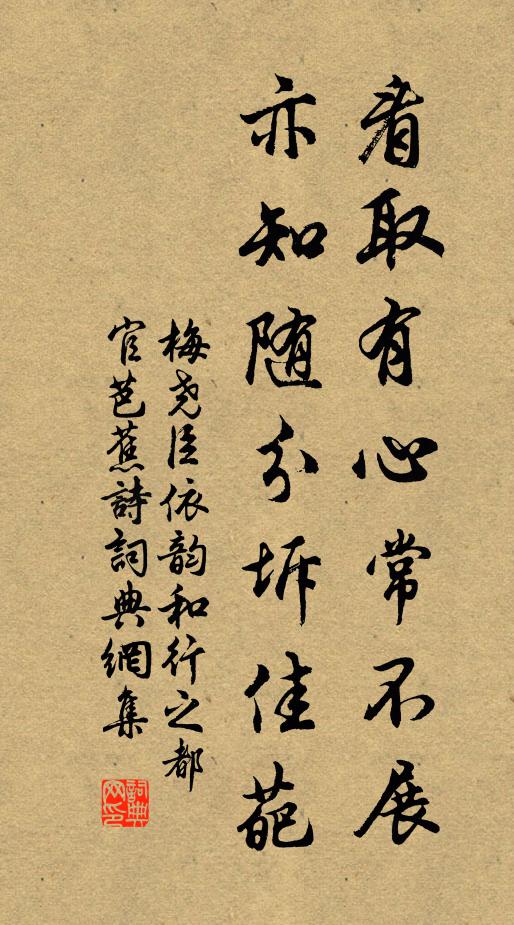 看取有心常不展
亦知随分坼佳葩
梅尧臣依韵和行之都
官芭蕉詩詞典網集
詞典
网印